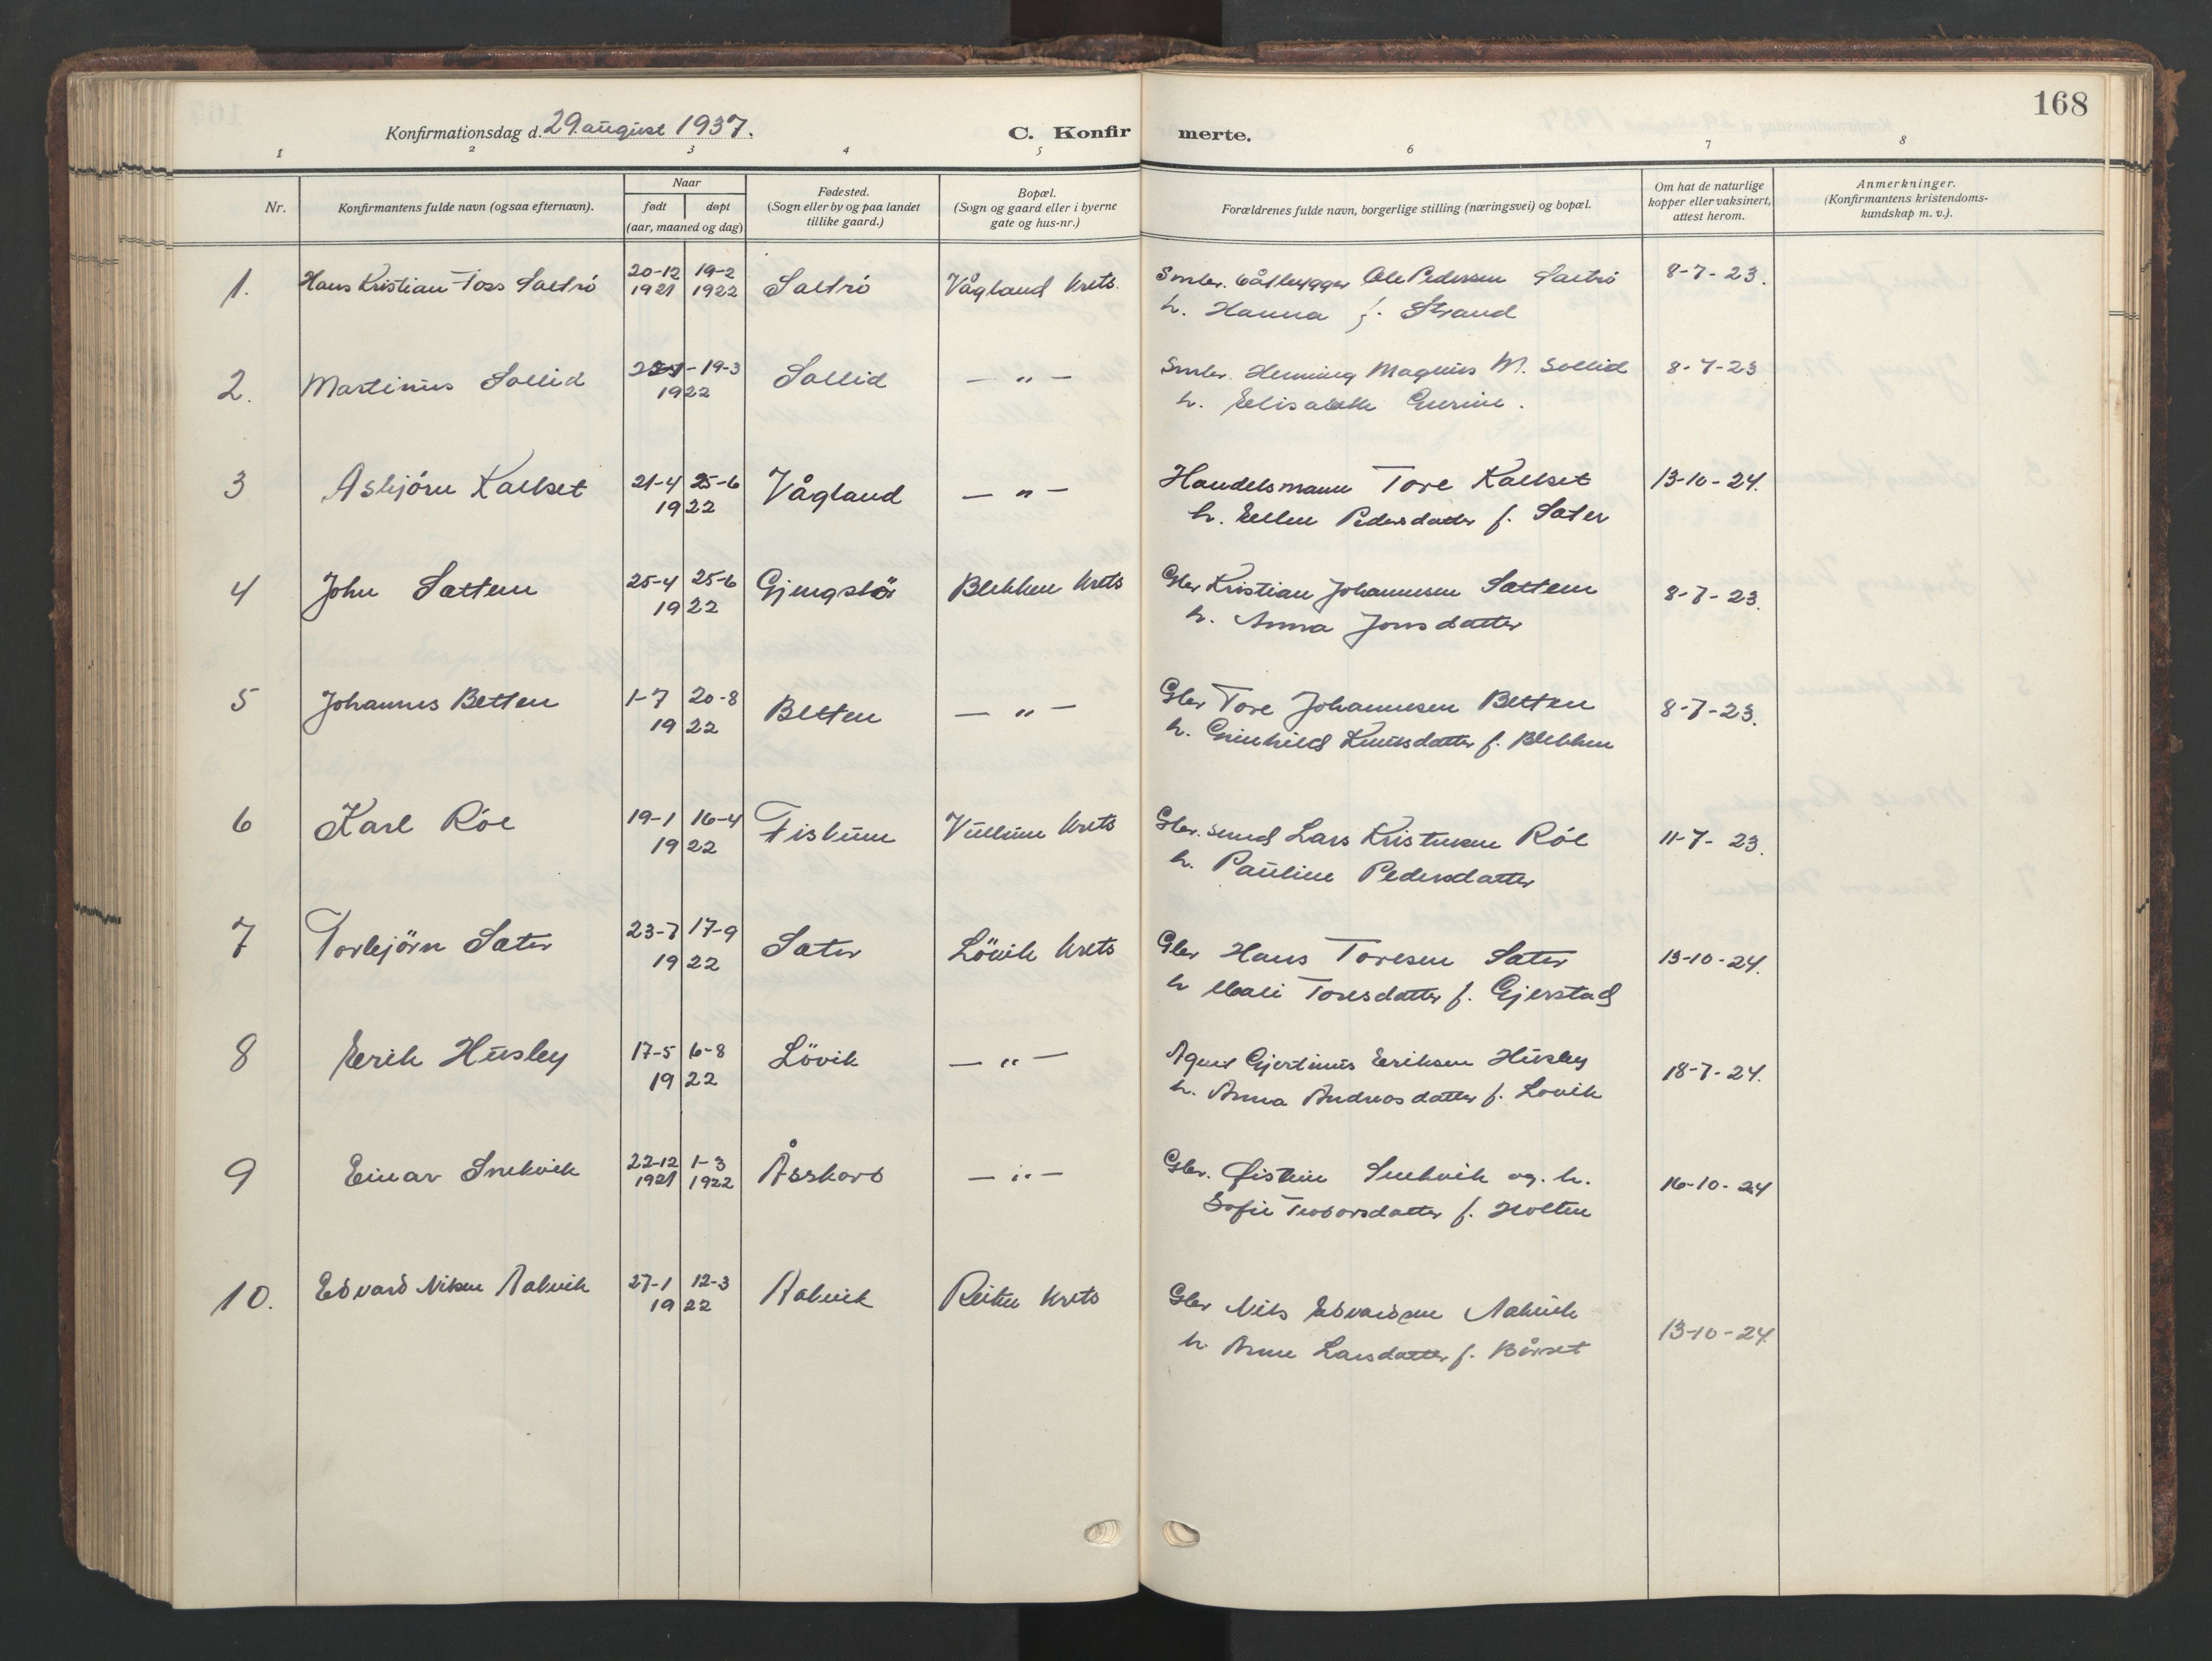 168
Konfirmationsdag d. 29 august 1937.
C. Konfirmerte.
1 2 3 4 5 6 7 8
Nr.
Konfirmantens fulde navn (ogsaa efternavn).
Naar
født døpt
(aar, maaned og dag)
Fødested.
(Sogn eller by og paa landet
tillike gaard.)
Bopæl.
(Sogn og gaard eller i byerne
gate og hus-nr.)
Forældrenes fulde navn, borgerlige stilling (næringsvei) og bopæl.
Om hat de naturlige
kopper eller vaksinert,
attest herom.
Anmerkninger.
(Konfirmantens kristendoms-
kundskap m. v.).
1. Hans Kristian Foss Saltrö 20-12 1921 19-2 1922 Saltrö Vågland krets. Smbr. båtbygger Ole Pedersen Saltrö 8-7-23.
h. Hanna f. Strand
2. Martinus Sollid 19-3 1922 Sollid — " — Smbr. Henning Magnus M. Sollid 8-7-23
h. Elisabeth Gurine.
3 Asbjörn Kalset 21-4 25-6 1922 Vågland — " — Handelsmann Tore Kalset 13-10-24.
h. Ellen Pedersdatter f. Sæter
4 John Sættem 25-4 25-6 1922 Gjengstö Blekken krets Gbr Kristian Johannesen Sættem 8-7-23.
h. Anna Jonsdatter
5 Johannes Betten 1-7 20-8 1922 Betten — " — Gbr Tore Johannesen Betten 8-7-23.
h. Gunhild Knutsdatter f. Blekken
6 Karl Röe 19-1 16-4 1922 Fiskum Vullum krets Gbr. smed Lars Kristensen Röe 11-7-23.
h. Pauline Pedersdatter
7 Torbjörn Sæter 23-7 17-9 1922 Sæter Lövik krets Gbr Hans Toresen Sæter 13-10-24.
h Mali Toresdatter f. Gjerstad
8 Erik Husby 17-5 6-8 1922 Lövik — " — Agent Gjertinus Eriksen Husby 18-7-24.
h. Anna Andreasdatter f. Lovik
9 Einar Snekvik 22-12 1921 1-3 1922 Åsskard — " — Gbr. Øistein Snekvik og h. 16-10-24
Sofie Teodorsdatter f. Holten
10. Edvard Nilsen Aalvik 27-1 12-3 1922 Aalvik Reiten krets Gbr Nils Edvardsen Aalvik 13-10-24.
h. Anne Larsdatter f. Bårset